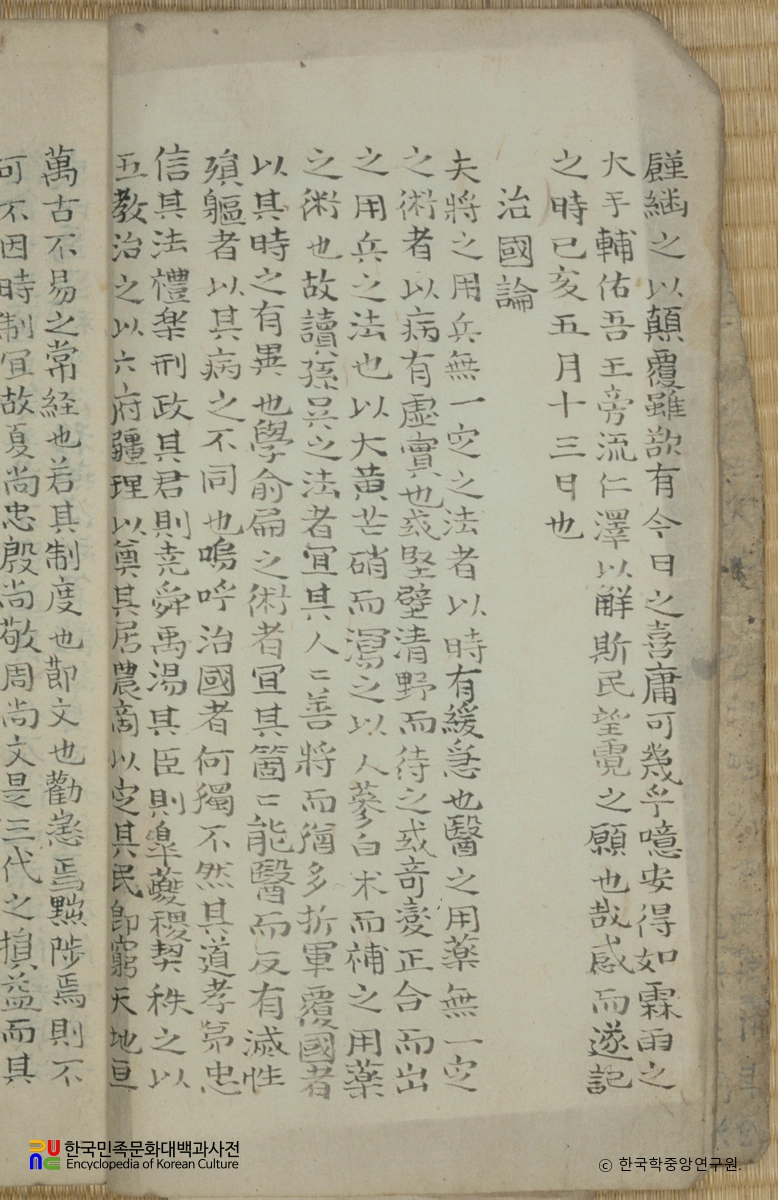 颾繇之以顛覆雖欲有今日之喜庸可幾乎噫安得如霖雨之
大手輔佑吾王旁流仁澤以解斯民望霓之願也哉感而遂記
之時己亥五月十三日也
治國論
夫將之用兵無一定之法者以時有緩急也醫之用藥無一定
之術者以病有虛實也或堅壁清野而待之或奇變正合而出
之用兵之法也以大黃芒硝而瀉之以人蔘白朮而補之用藥
之術也故讀孫吳之法者宜其人〻善將而猶多折軍覆國者
以其時之有異也學俞扁之術者宜其箇〻能醫而反有滅性
殞軀者以其病之不同也嗚呼治國者何獨不然其道孝弟忠
信其法禮樂刑政其君則堯舜禹湯其臣則皐夔稷契秩之以
五敎治之以六府疆理以奠其居農商以定其民卽窮天地亘
萬古不易之常経也若其制度也節文也勸懲焉黜陟焉則不
可不因時制宜故夏尚忠殷尚敬周尚文是三代之損益而其
한국민족문화대백과사전
Encyclopedia of Korean Culture
ⓒ 한국학중앙연구원.